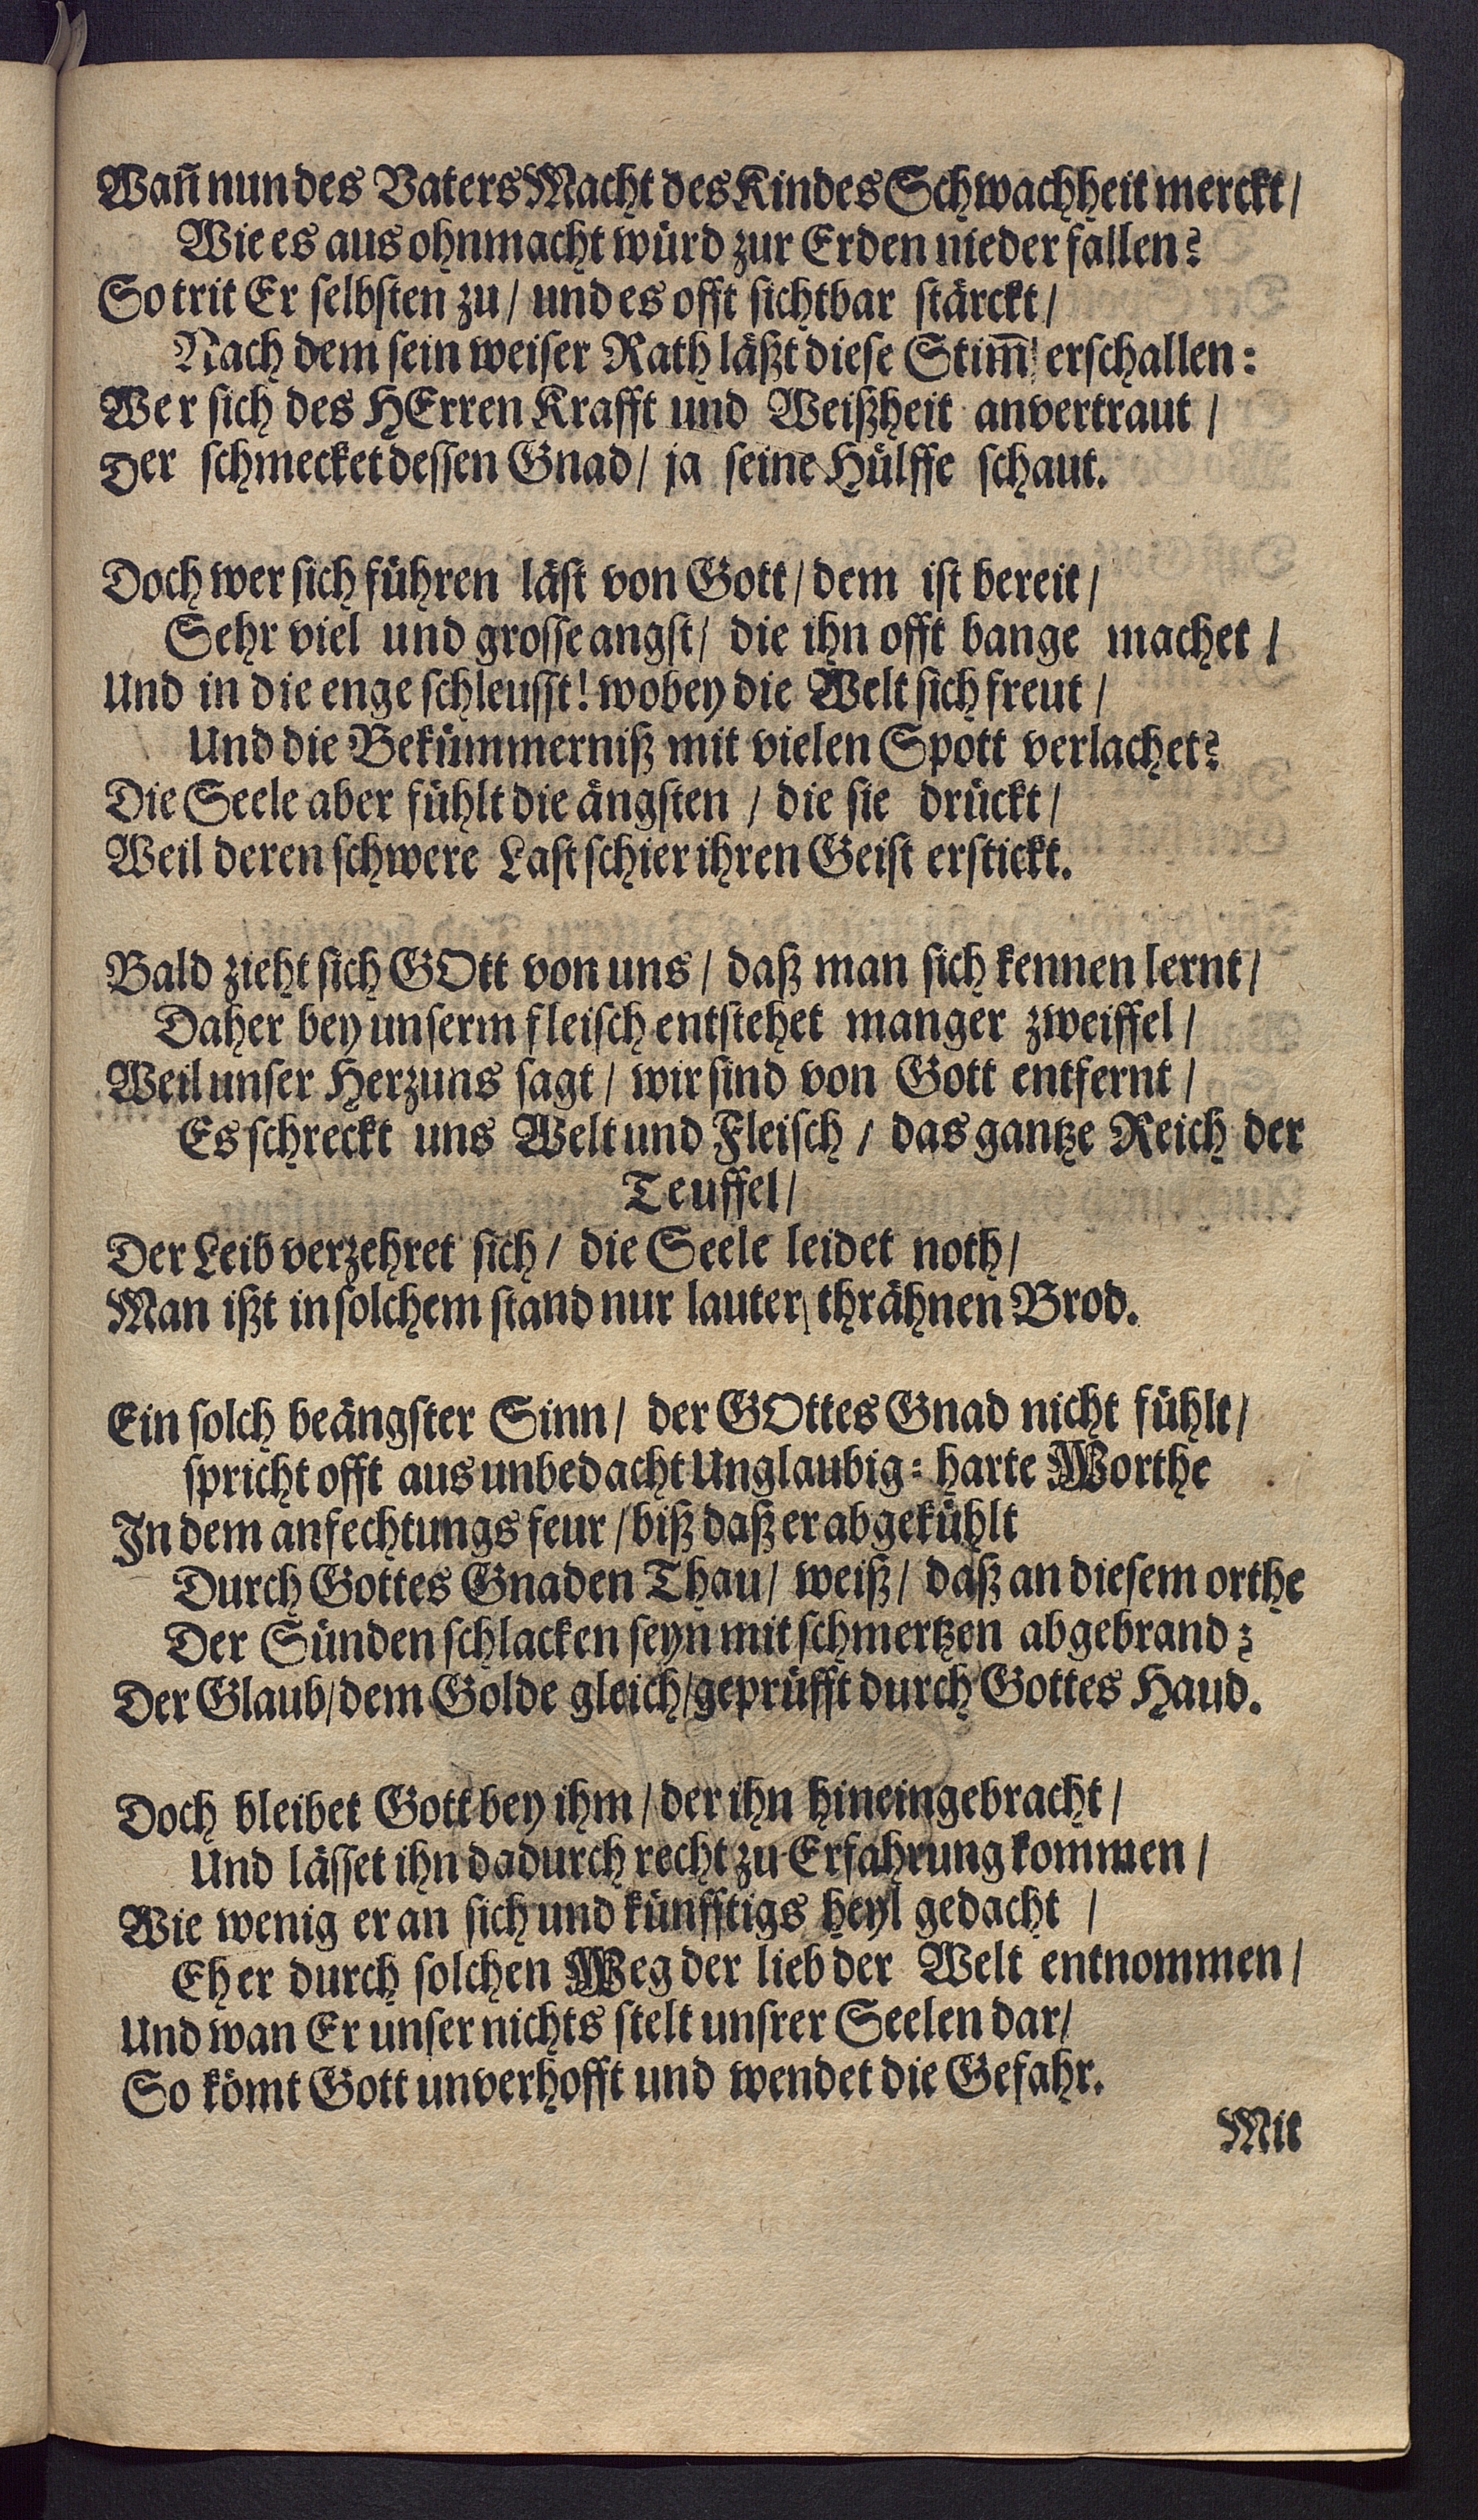 Wañ nun des Vaters Macht des Kindes Schwachheit merckt/
Wie es aus ohnmacht würd zur Erden nieder fallen?
So trit Er selbsten zu/ und es offt sichtbar stärckt/
Nach dem sein weiser Rath läßt diese Stim̃! erschallen:
Wer sich des HErren Krafft und Weißheit anvertraut/
Der schmecket dessen Gnad/ ja seine Hülffe schaut.
Doch wer sich führen läst von Gott/ dem ist bereit/
Sehr viel und grosse angst/ die ihn offt bange machet/
Und in die enge schleusst! wobey die Welt sich freut/
Und die Bekümmerniß mit vielen Spott verlachet?
Die Seele aber fühlt die ängsten/ die sie drückt/
Weil deren schwere Last schier ihren Geist erstickt.
Bald zieht sich GOtt von uns/ daß man sich kennen lernt/
Daher bey unserm fleisch entstehet manger zweiffel/
Weil unser Herz uns sagt/ wir sind von Gott entfernt/
Es schreckt uns Welt und Fleisch/ das gantze Reich der
Teuffel/
Der Leib verzehret sich/ die Seele leidet noth/
Man ißt in solchem stand nur lauter thrähnen Brod.
Ein solch beängster Sinn/ der GOttes Gnad nicht fühlt/
spricht offt aus unbedacht Unglaubig-harte Worthe
In dem anfechtungs feur/ biß daß er abgekühlt
Durch Gottes Gnaden Thau/ weiß/ daß an diesem orthe
Der Sünden schlacken seyn mit schmertzen abgebrand;
Der Glaub/ dem Golde gleich/ geprüfft durch Gottes Haud.
Doch bleibet Gott bey ihm/ der ihn hineingebracht/
Und lässet ihn dadurch recht zu Erfahrung kommen/
Wie wenig er an sich und künfftigs heyl gedacht/
Eh er durch solchen Weg der lieb der Welt entnommen/
Und wan Er unser nichts stelt unsrer Seelen dar/
So kömt Gott unverhofft und wendet die Gefahr.
Mit